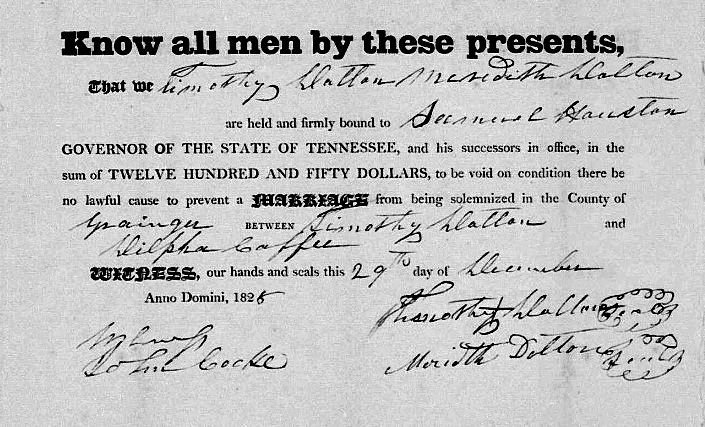 Know all men by these presents,
That we Timothy Dalton Meredith Dalton
are held and firmly bound to Samuel Houston
GOVERNOR OF THE STATE OF TENNESSEE, and his successors in office, in the
sum of TWELVE HUNDRED AND FIFTY DOLLARS, to be void on condition there be
no lawful cause to prevent a MARRIAGE from being solemnized in the County of
Grainger BETWEEN Timothy Dalton and
Dilpha Coffee
WITNESS, our hands and seals this 29th day of December
Anno Domini, 1828
Timothy Dalton Seal
John Cocke
Meridth Dolton Seal